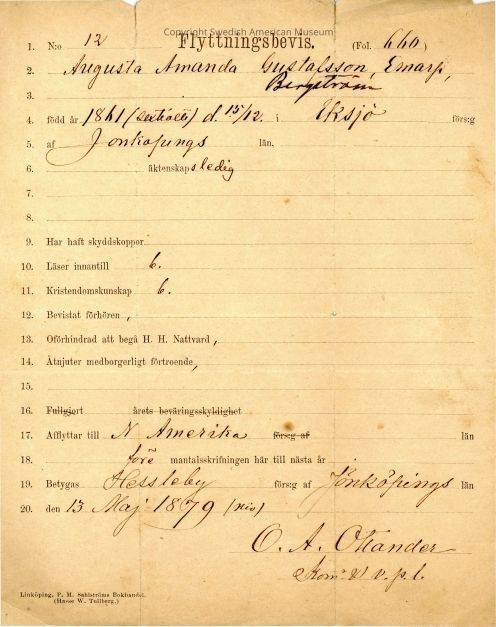 Copyright Swedish American Museum
Flyttningsbevis.
1. N:o 12 (Fol. 660)
2. Augusta Amanda Gustafsson, Emarp,
3. Bergström
4. född år 1861 (sextioett) d. 15/12. i Eksjö förs:g
5. af Jönköpings län,
6. äktenskaps ledig
7.
8.
9. Har haft skyddskoppor
10. Läser innantill b.
11. Kristendomskunskap b.
12. Bevistat förhören,
13. Oförhindrad att begå H. H. Nattvard,
14. Åtnjuter medborgerligt förtroende,
15.
16. Fullgjort årets beväringsskyldighet
17. Afflyttar till N Amerika förs:g af län
18. före mantalsskrifningen här till nästa år.
19. Betygas Hessleby förs:g af Jönköpings län
20. den 13 Maj 1879 (nio)
O. A. Okander
Kom. v. p. l.
Linköping, P. M. Sahlströms Bokhandel.
(Hasse W. Tullberg.)